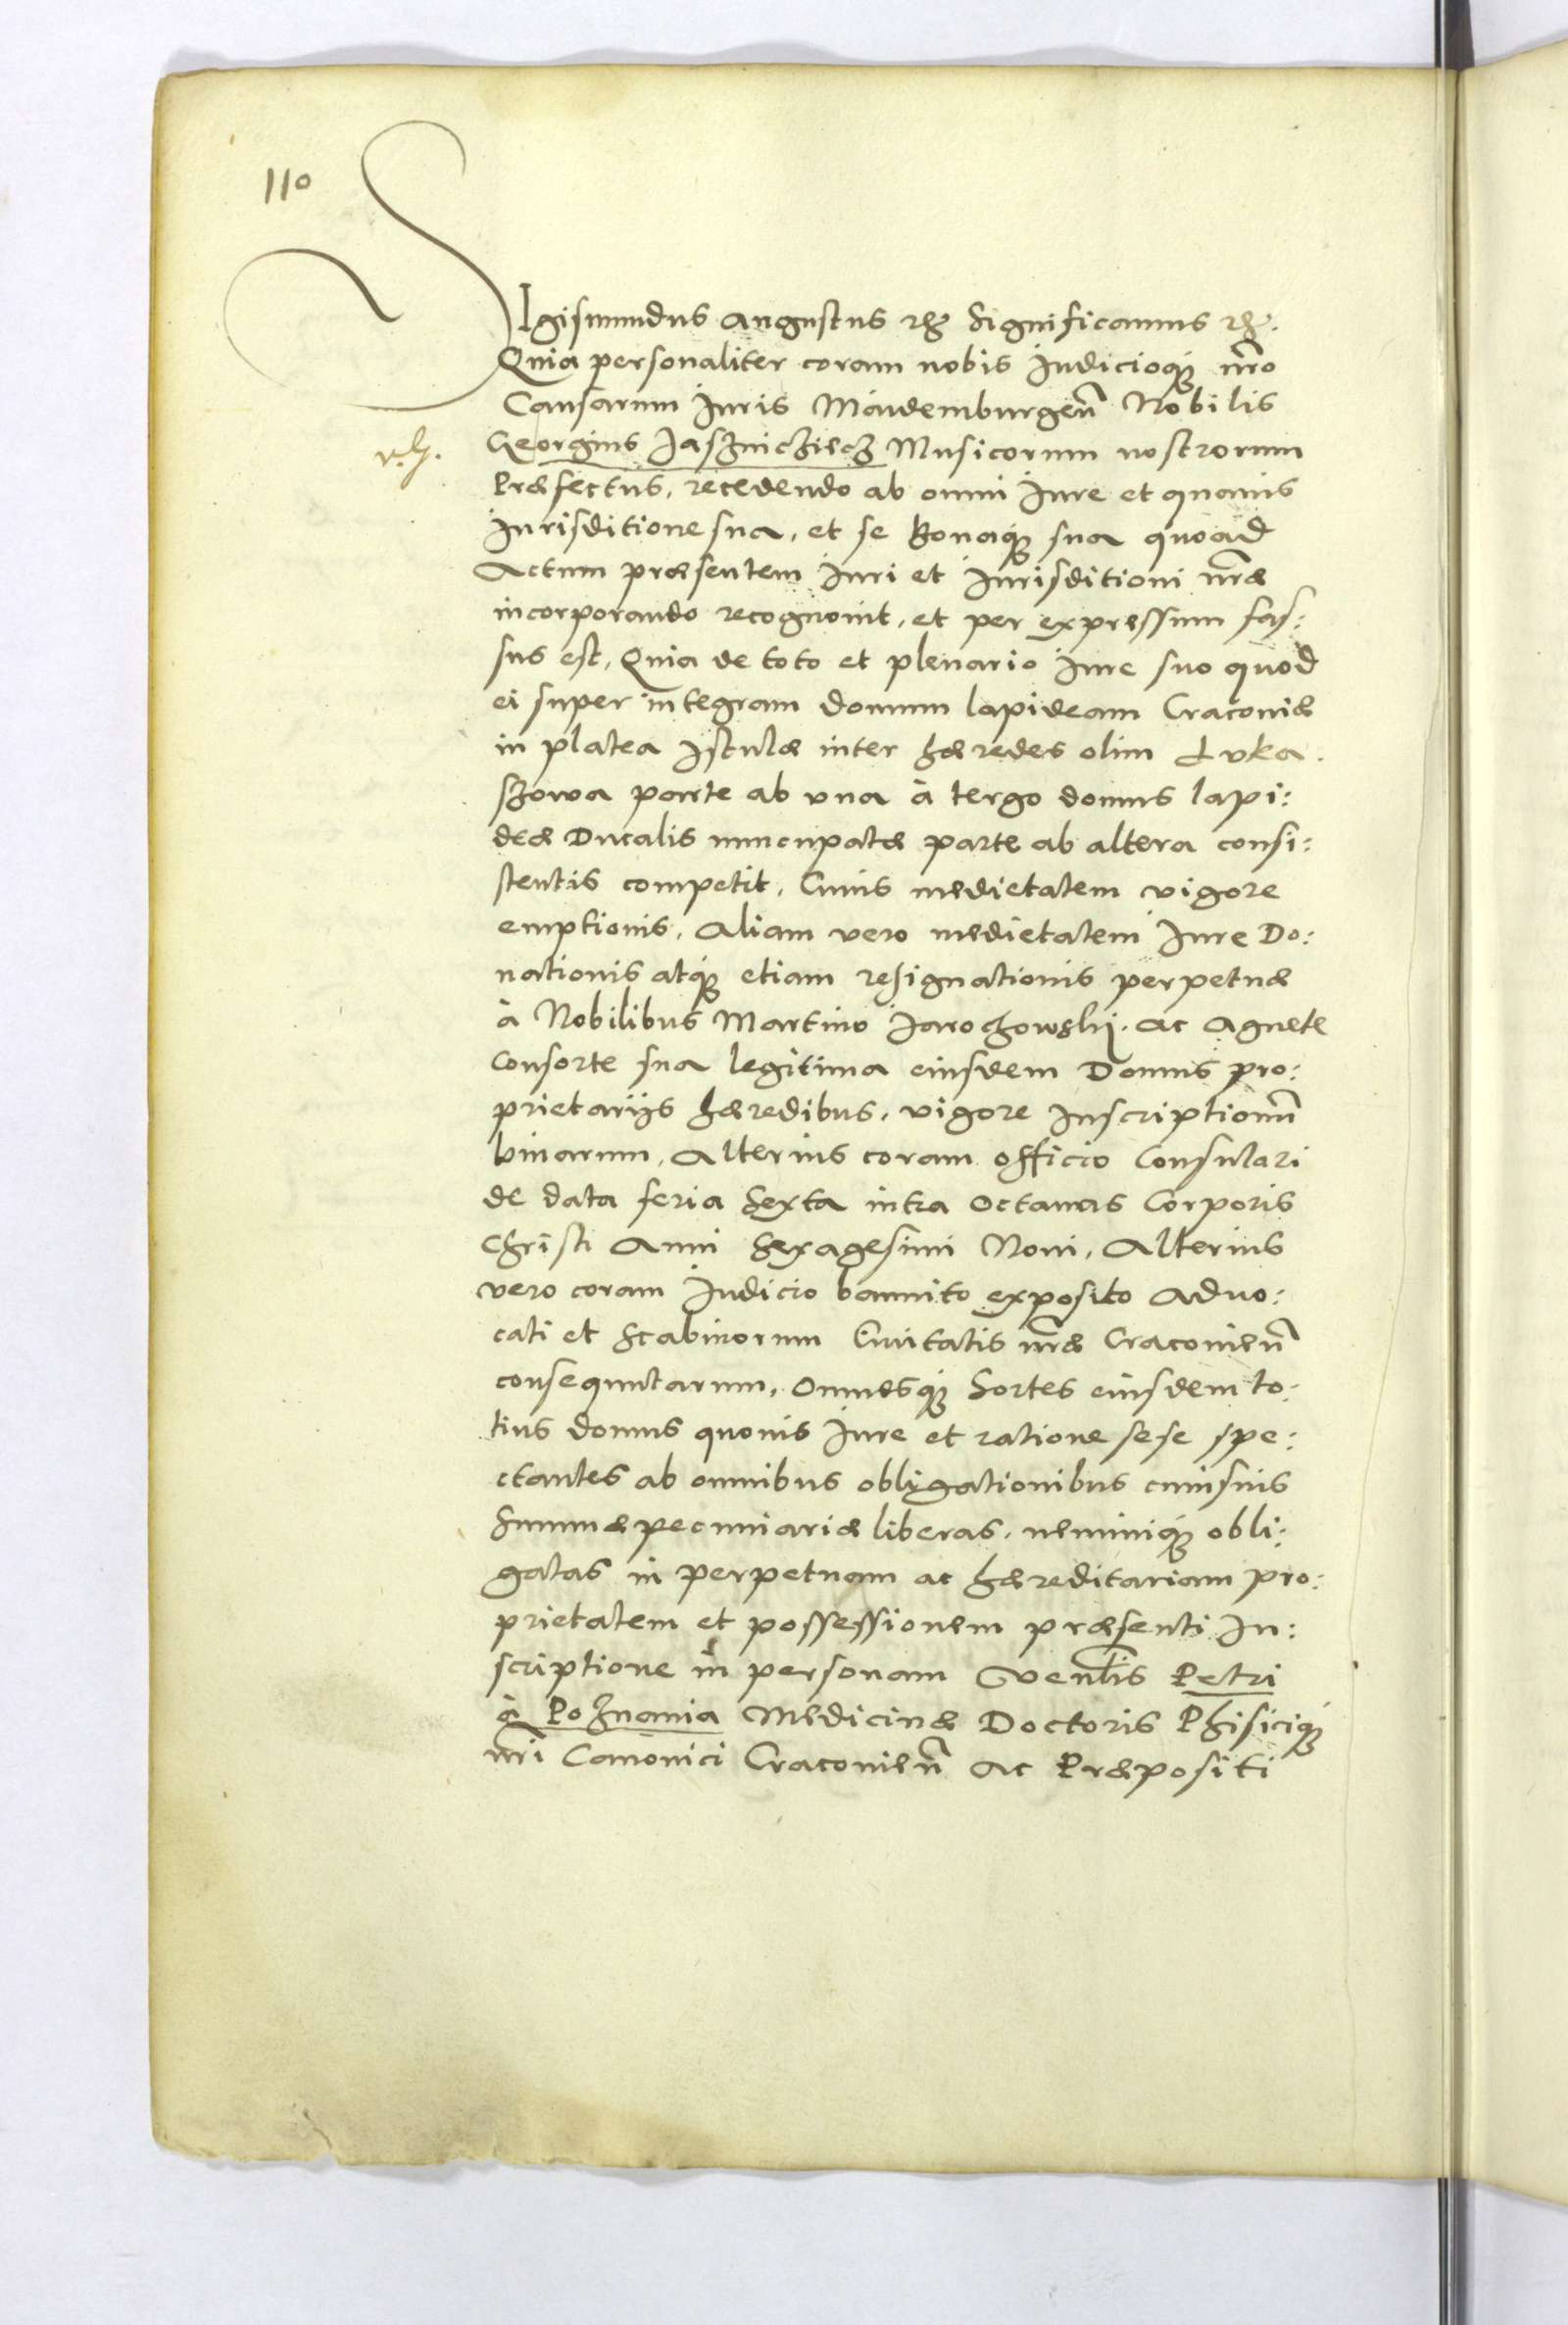 110
SIgismundus Augustus etc Significamus etc.
Quia personaliter coram nobis Iudicioque nro
Causarum Iuris Maidemburgen Nobilis
Georgius Jaszniczkiecz Musicorum nostrorum
Præfectus, recedendo ab omni Iure et quauis
Iurisditione sua, et se Bonaque sua quoad
Actum præsentem Iuri et Iurisditioni nræ
incorporando recognouit, et per expressum fas:
sus est, Quia de toto et plenario Iure suo quod
ei super integram domum lapideam Cracouiæ
in platea Istulæ inter hæredes olim Luka.
szowa parte ab vna à tergo domus lapi:
deæ Ducalis nuncupatæ parte ab altera consi:
stentis competit, Cuius medietatem vigore
emptionis, Aliam vero medietatem Iure Do:
nationis atque etiam resignationis perpetuæ
à Nobilibus Martino Jarochowskij. ac Agnete
Consorte sua legitima eiusdem Domus pro:
prietarijs hæredibus, vigore Inscriptionum
binarum, Alterius coram officio Consulari
de data feria Sexta intra Octauas Corporis
Christi Anni Sexagesimi Noni, Alterius
vero coram Iudicio bannito exposito Aduo:
cati et Scabinorum Ciuitatis nræ Cracouien
consequutarum, Omnesque Sortes eiusdem to:
tius domus quouis Iure et ratione sese spe:
ctantes ab omnibus obligationibus cuiusuis
Summæ pecuniariæ liberas, neminique obli:
gatas in perpetuam ac hæreditariam pro:
prietatem et possessionem præsenti In:
scriptione in personam Venlis Petri
à Poznania Medicinæ Doctoris Phisicique
nri Canonici Cracouien ac Præpositi